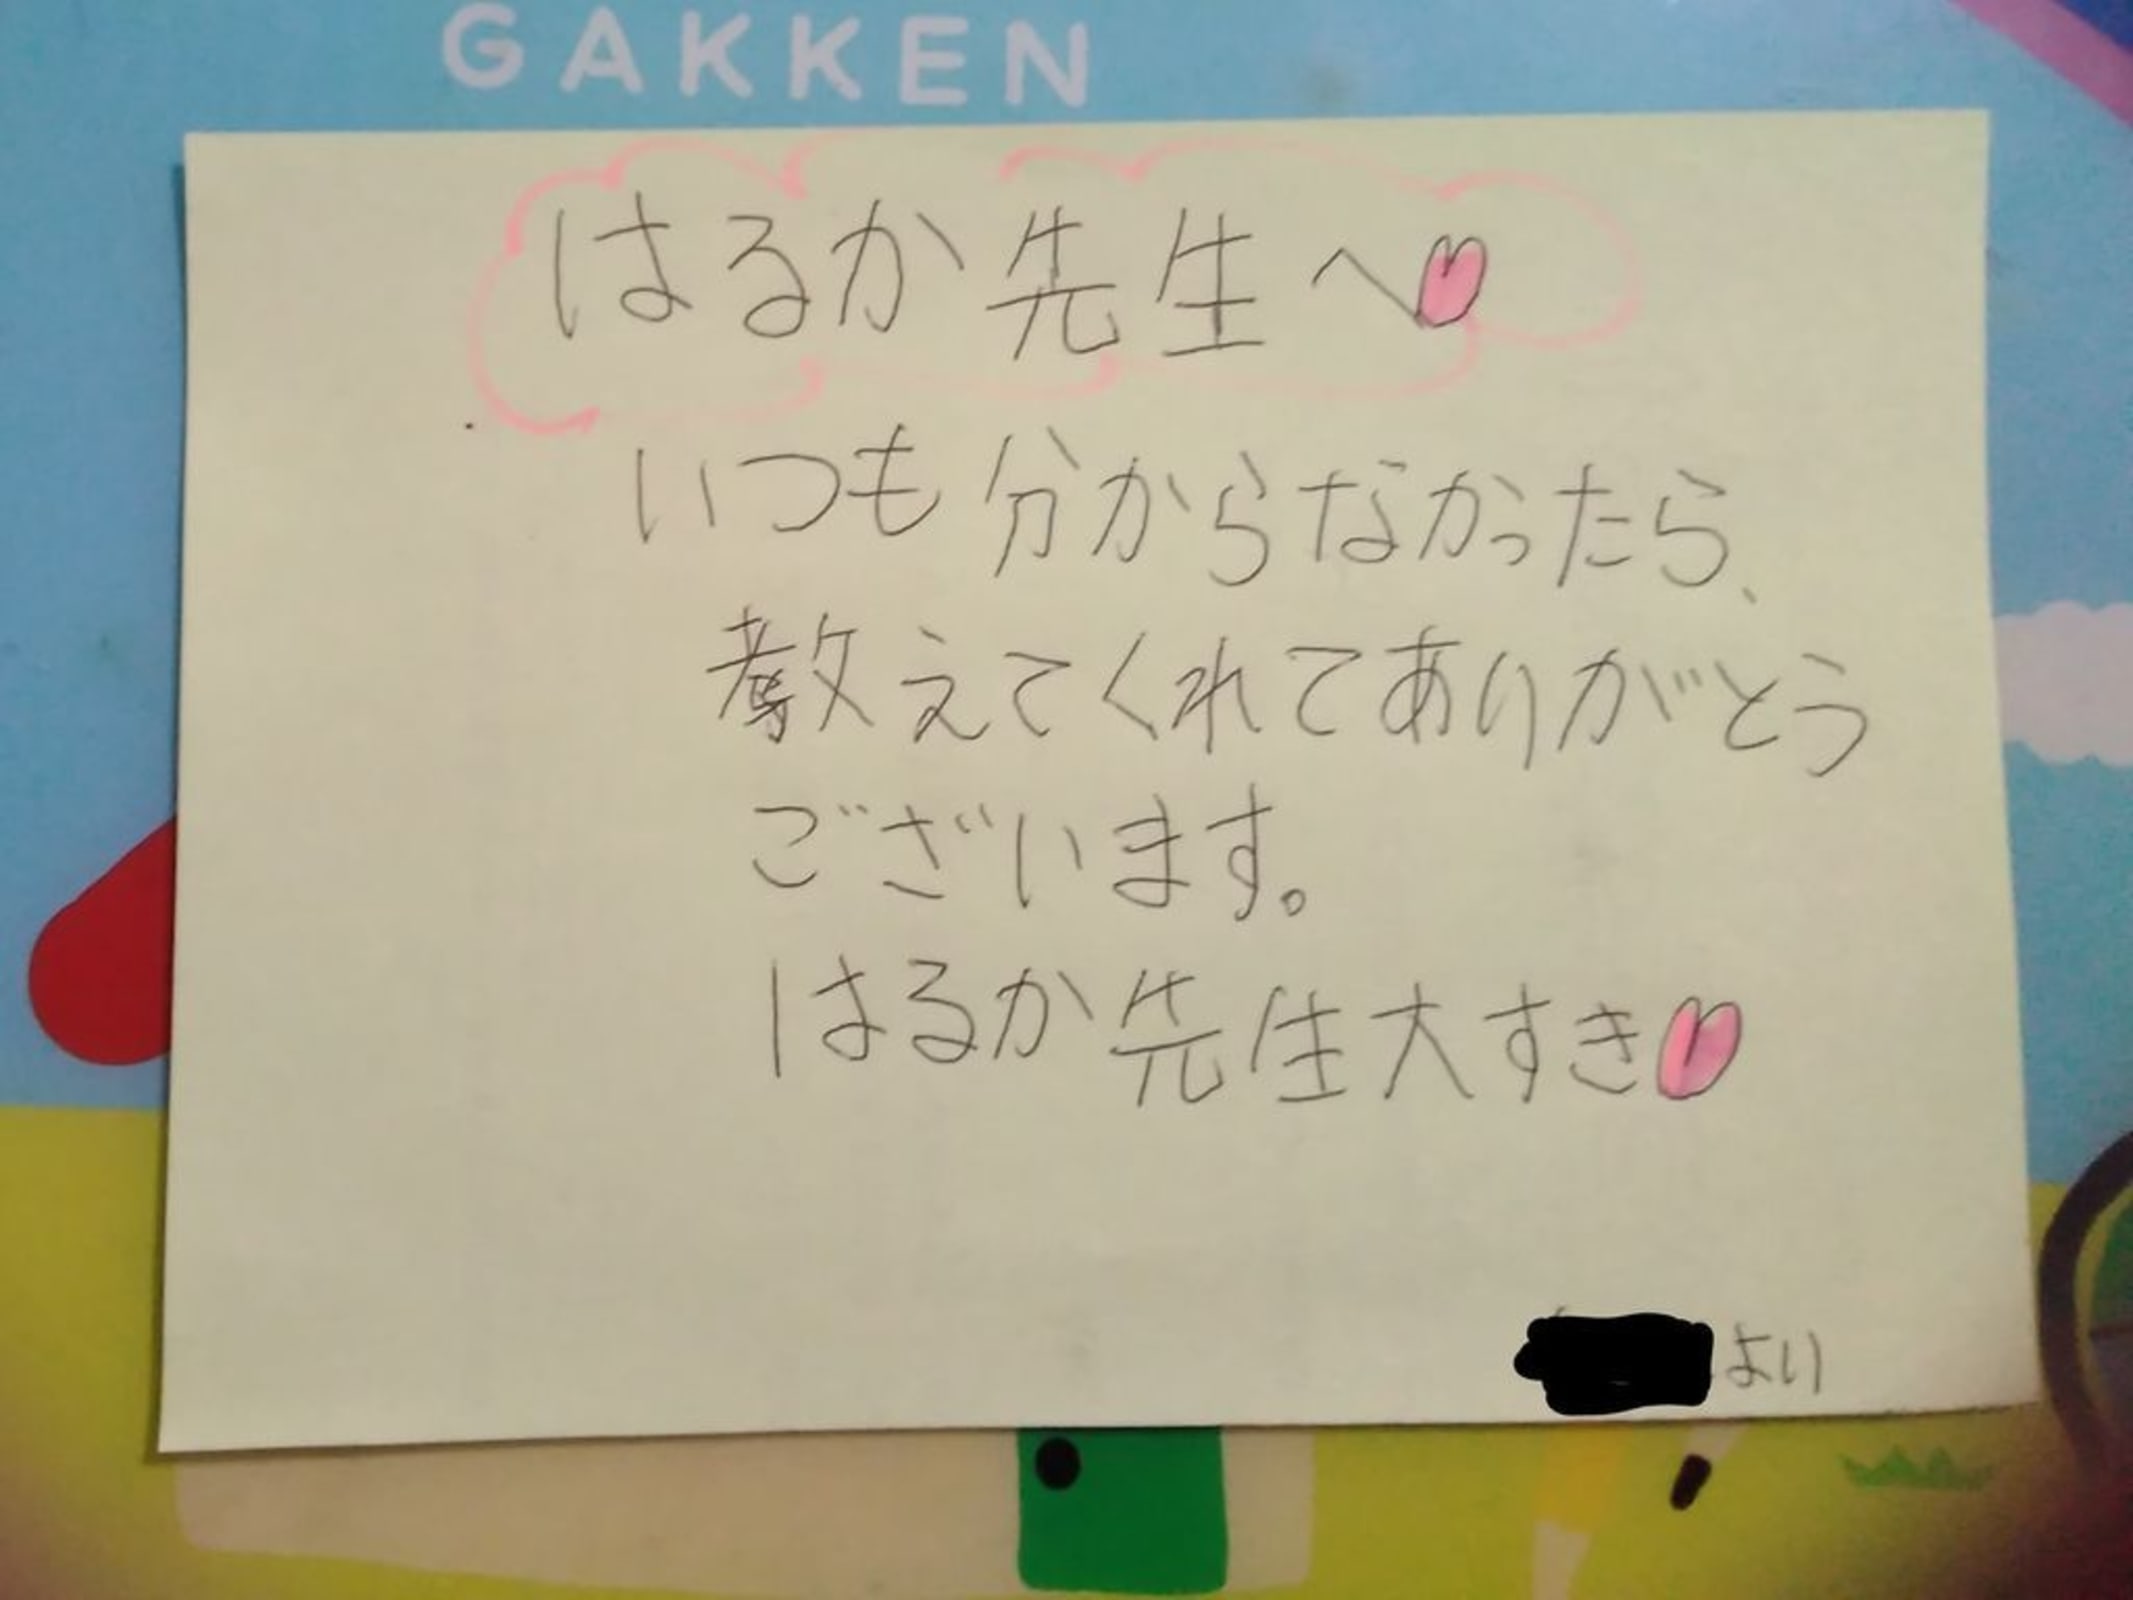 GAKKEN
はるか先生へ♡
いつも分からなかったら、
教えてくれてありがとう
ございます。
はるか先生大すき♡
よい